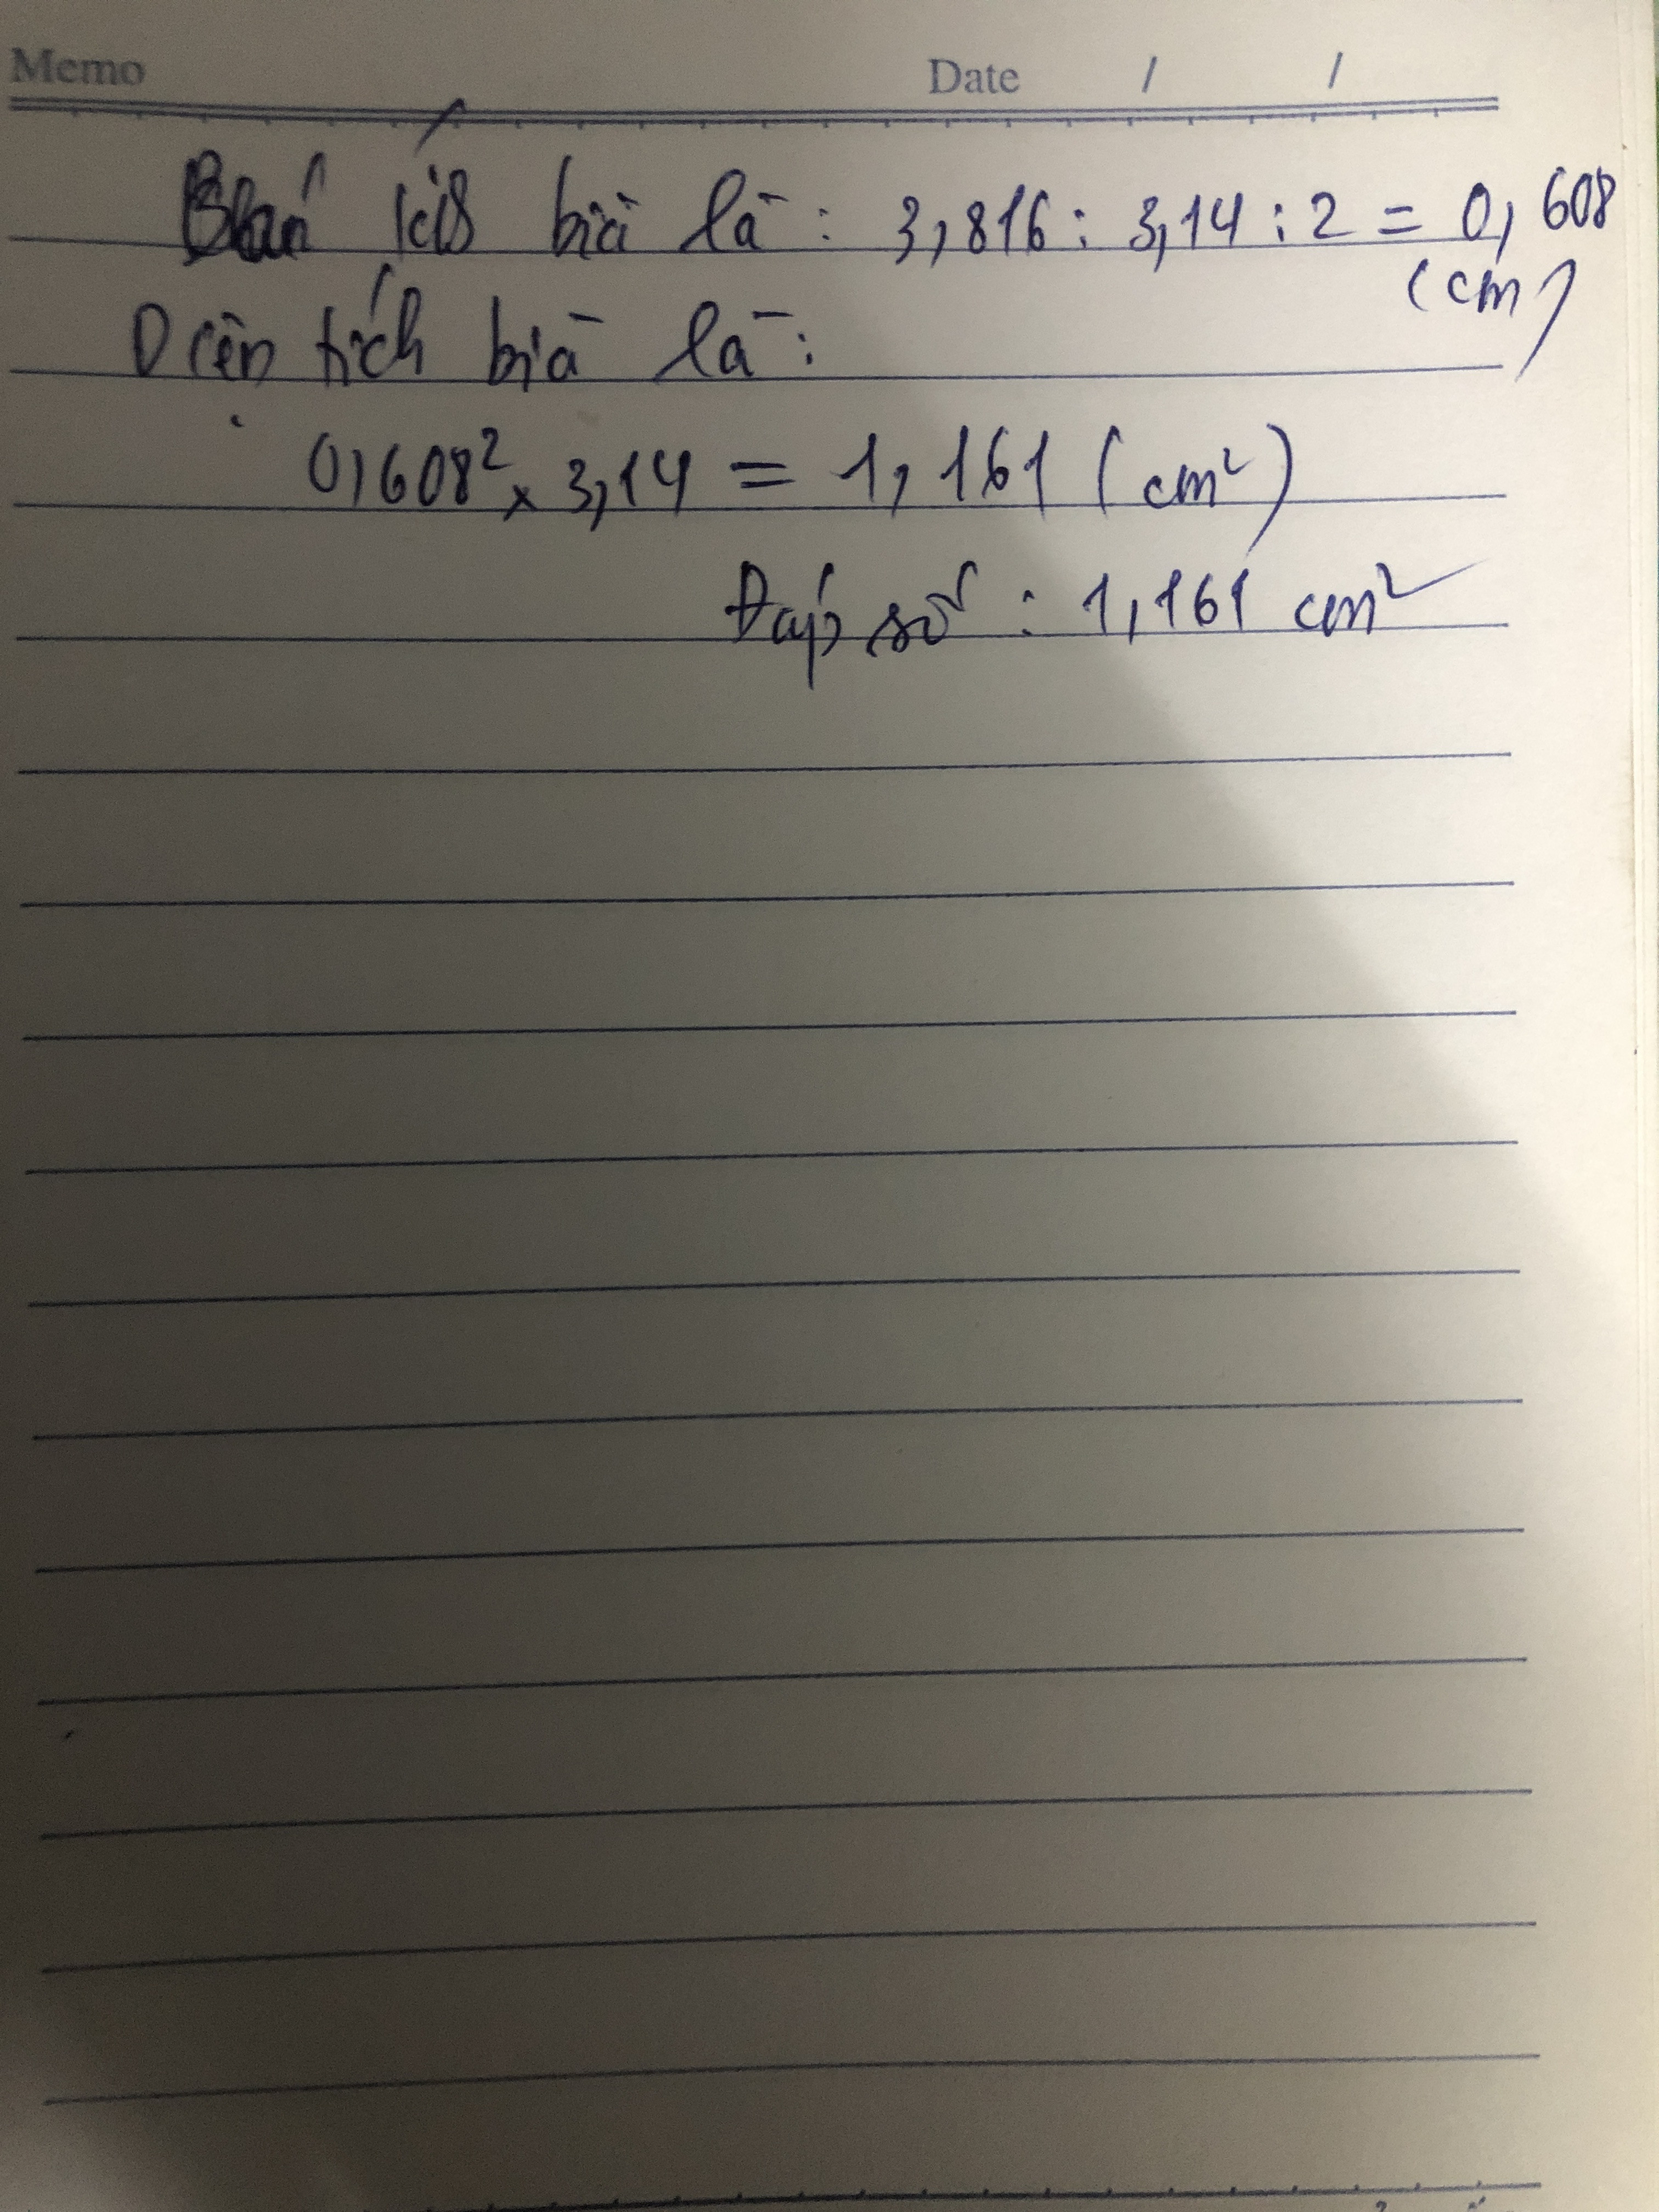 Memo Date / /
Bán kís bìa là : 3,816 : 3,14 : 2 = 0,608
(cm)
Diện tích bìa là :
0,608² x 3,14 = 1,161 (cm²)
Đáp số : 1,161 cm²